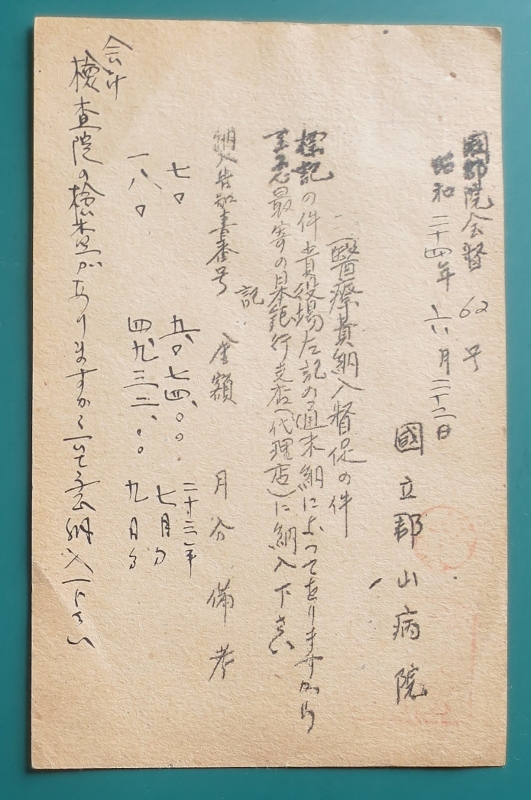 國郡院会督 62 号
昭和二十四年六月二十二日
國立郡山病院
醫療費納入督促の件
標記の件貴役場左記の通未納になってをりますから
至急最寄の日本銀行支店(代理店)に納入下さい
記
納入告知書番号 金額 月分 備考
七〇 九〇七四、〇〇 二十三年七月分
一八〇 四九三二、〇〇 九月分
会計検査院の検査がありますから 納入下さい